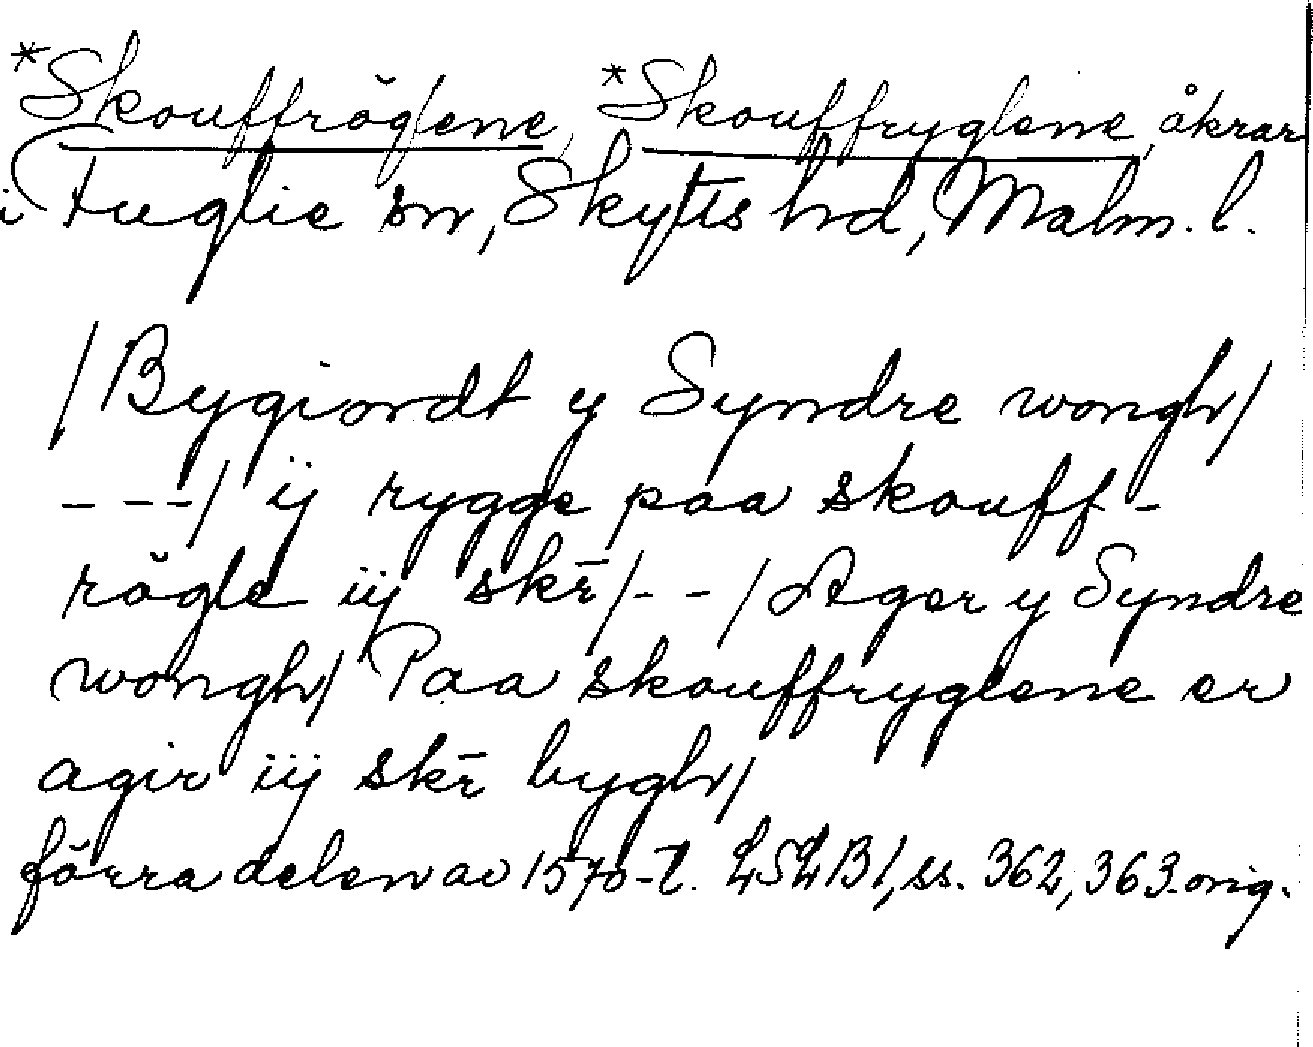 *Skouffrögene, *Skouffryglene, åkrar
i Fuglie sn, Skytts hd, Malm. l.
/Bygiordt y Syndre wongh/
---/ ij rygge paa skouff-
rögle iij skr̄/--/Ager y Syndre
wongh/ Paa skouffryglene er
agir iij skr̄ bygh/
förra delen av 1570-t. LSLB1, ss. 362, 363 orig.